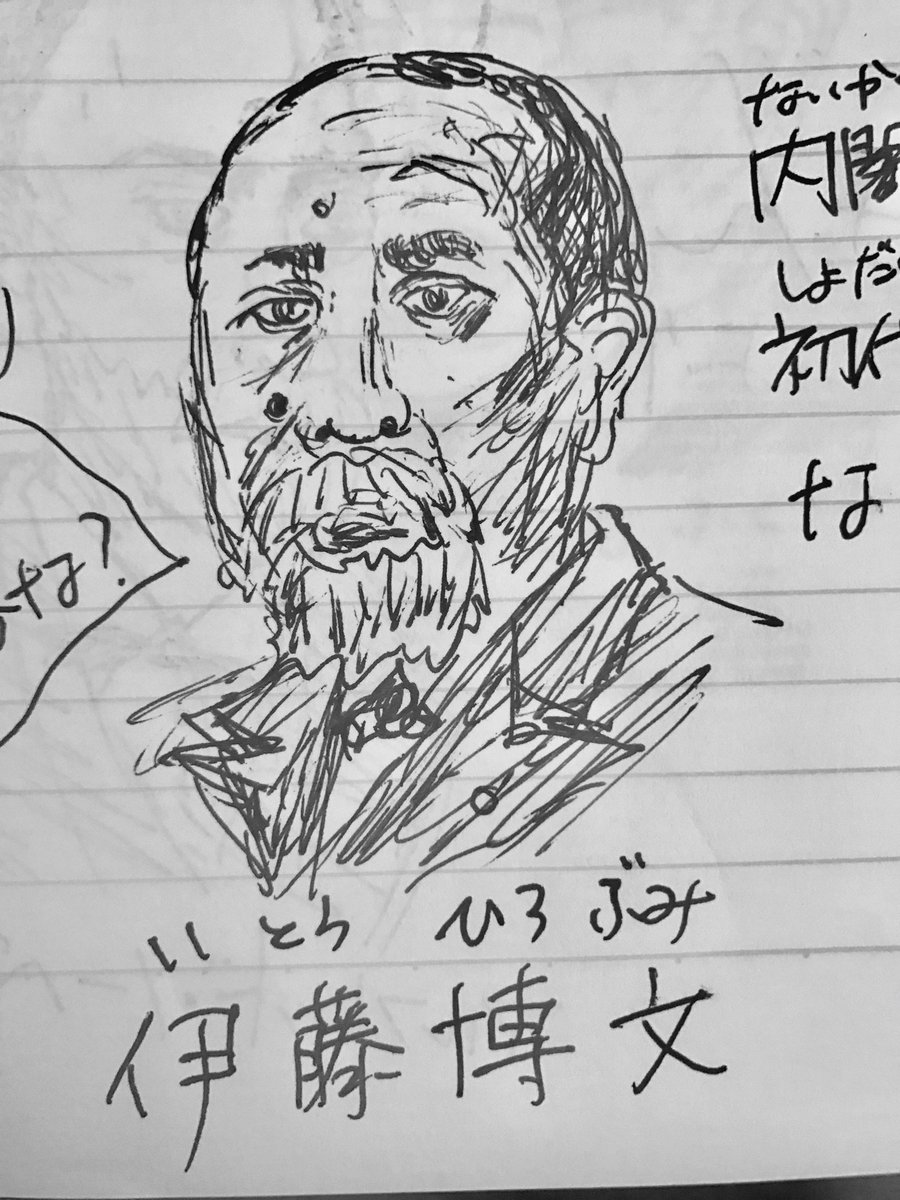 ないか
内閣
しょだ
初代
な
な?
いとう ひろぶみ
伊藤博文